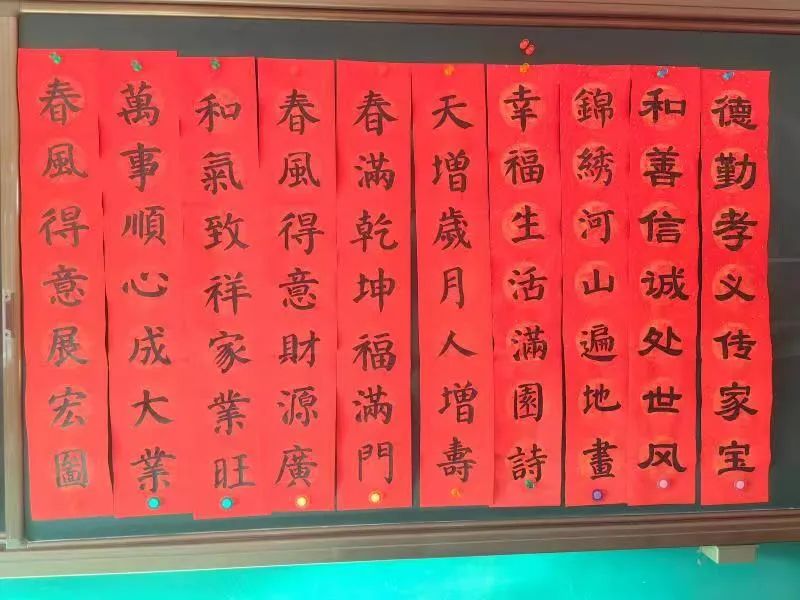 德勤孝义传家宝
和善信诚处世风
錦綉河山遍地畫
幸福生活滿園詩
天增歲月人增壽
春滿乾坤福滿門
春風得意財源廣
和氣致祥家業旺
萬事順心成大業
春風得意展宏圖